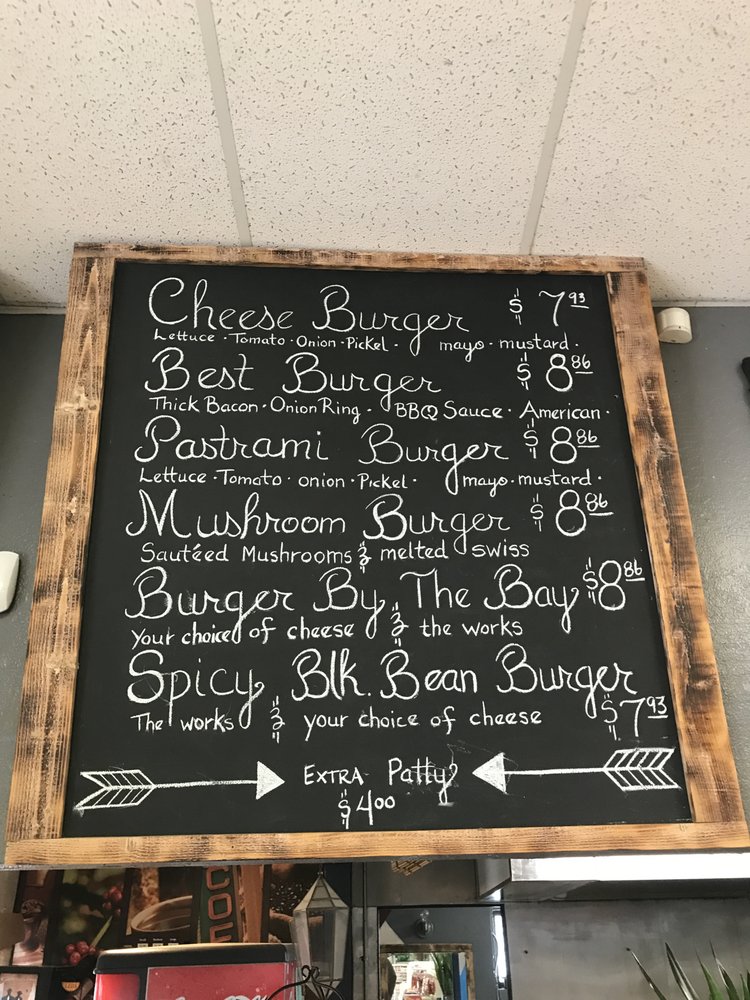 Cheese Burger $ 7 93
Lettuce · Tomato · Onion · Pickel · mayo · mustard ·
Best Burger $ 8 86
Thick Bacon · Onion Ring · BBQ Sauce · American ·
Pastrami Burger $ 8 86
Lettuce · Tomato · onion · Pickel · mayo · mustard ·
Mushroom Burger $ 8 86
Sautéed Mushrooms & melted swiss
Burger By The Bay $ 8 86
Your choice of cheese & the works
Spicy Blk. Bean Burger
The works & your choice of cheese $ 7 93
Extra Patty
$ 4 00